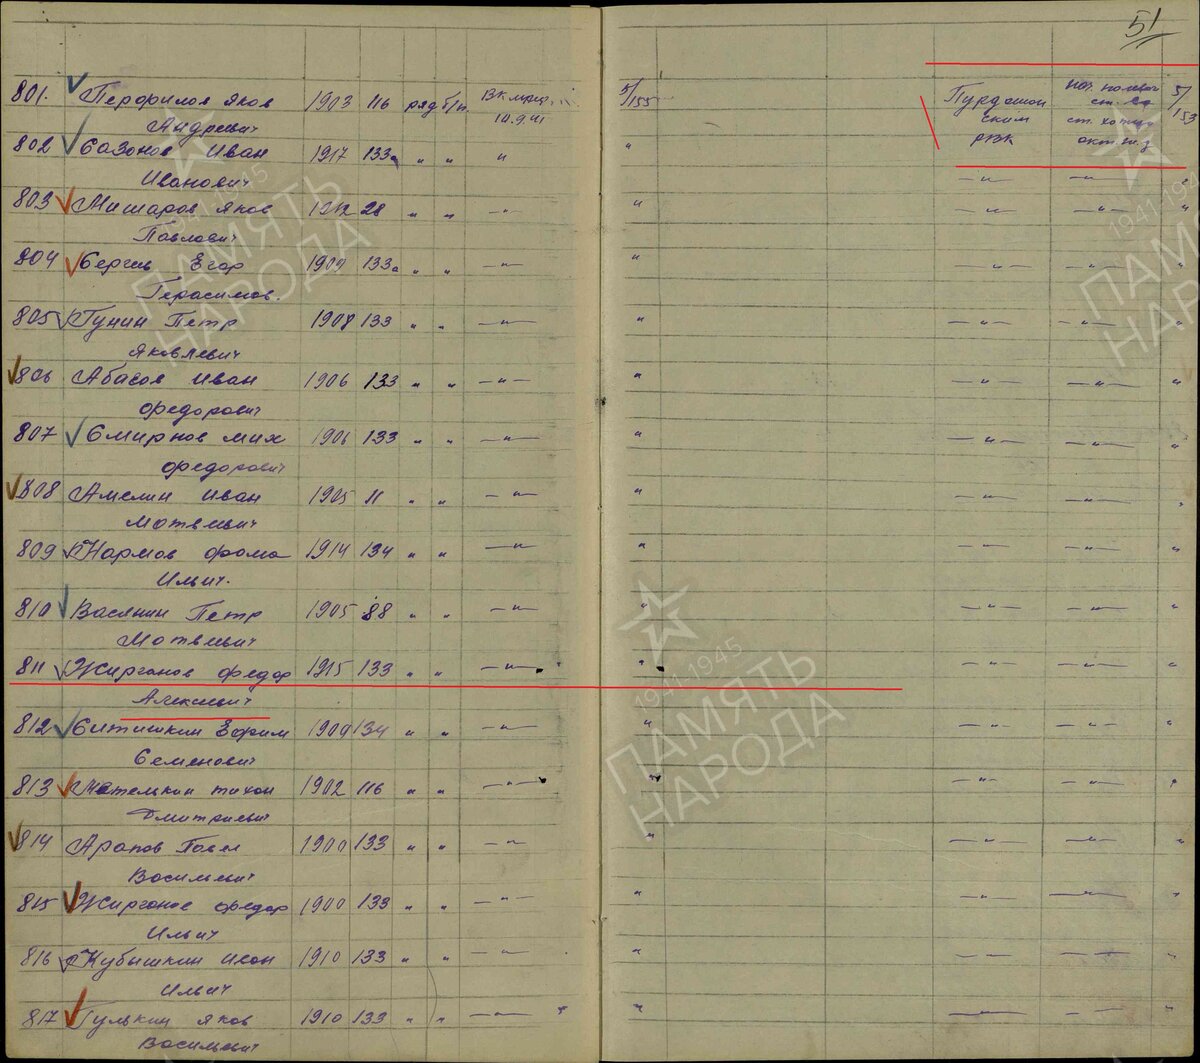 51
801. Перфилов Яков 1903 116 ряд б/п. 5/155 Пурдошан 5/153
Андреевич 10.9.41 ским
РВК
802 Сазонов Иван 1917 133а " " " "
Иванович
803 Мишаров Яков 1912 28 " " -"- " -"- -"- "
Павлович
804 Сергев Егор 1909 133а " " -"- " -"- -"- "
Герасимов.
805 Гунин Петр 1908 133 " " -"- " -"- -"- "
Яковлевич
806 Абасов Иван 1906 133 " " -"- " -"- -"- "
Федорович
807 Смирнов Мих 1906 133 " " -"- " -"- -"- "
Федорович
808 Амелин Иван 1905 11 " " -"- " -"- -"- "
Матвеевич
809 Нармов Фома 1914 134 " " -"- " -"- -"- "
Ильич.
810 Васянин Петр 1905 88 " " -"- " -"- -"- "
Матвеевич
811 Жирганов Федор 1915 133 " " -"- " -"- -"- "
Алексеевич
812 Ситишкин Ефрим 1909 134 " " -"- " -"- -"- "
Семенович
813 Мателкин Тихон 1902 116 " " -"- " -"- -"- "
Дмитриевич
814 Арапов Павел 1900 133 " " -"- " -"- -"- "
Васильевич
815 Жирганов Федор 1900 133 " " -"- " -"- -"- "
Ильич
816 Кубышкин Иван 1910 133 " " -"- " -"- -"- "
Ильич
817 Гулькин Яков 1910 133 " " -"- " -"- -"- "
Васильевич
1941-1945
ПАМЯТЬ
НАРОДА
1941-1945
ПАМЯТЬ
НАРОДА
1941-1945
ПАМЯТЬ
НАРОДА